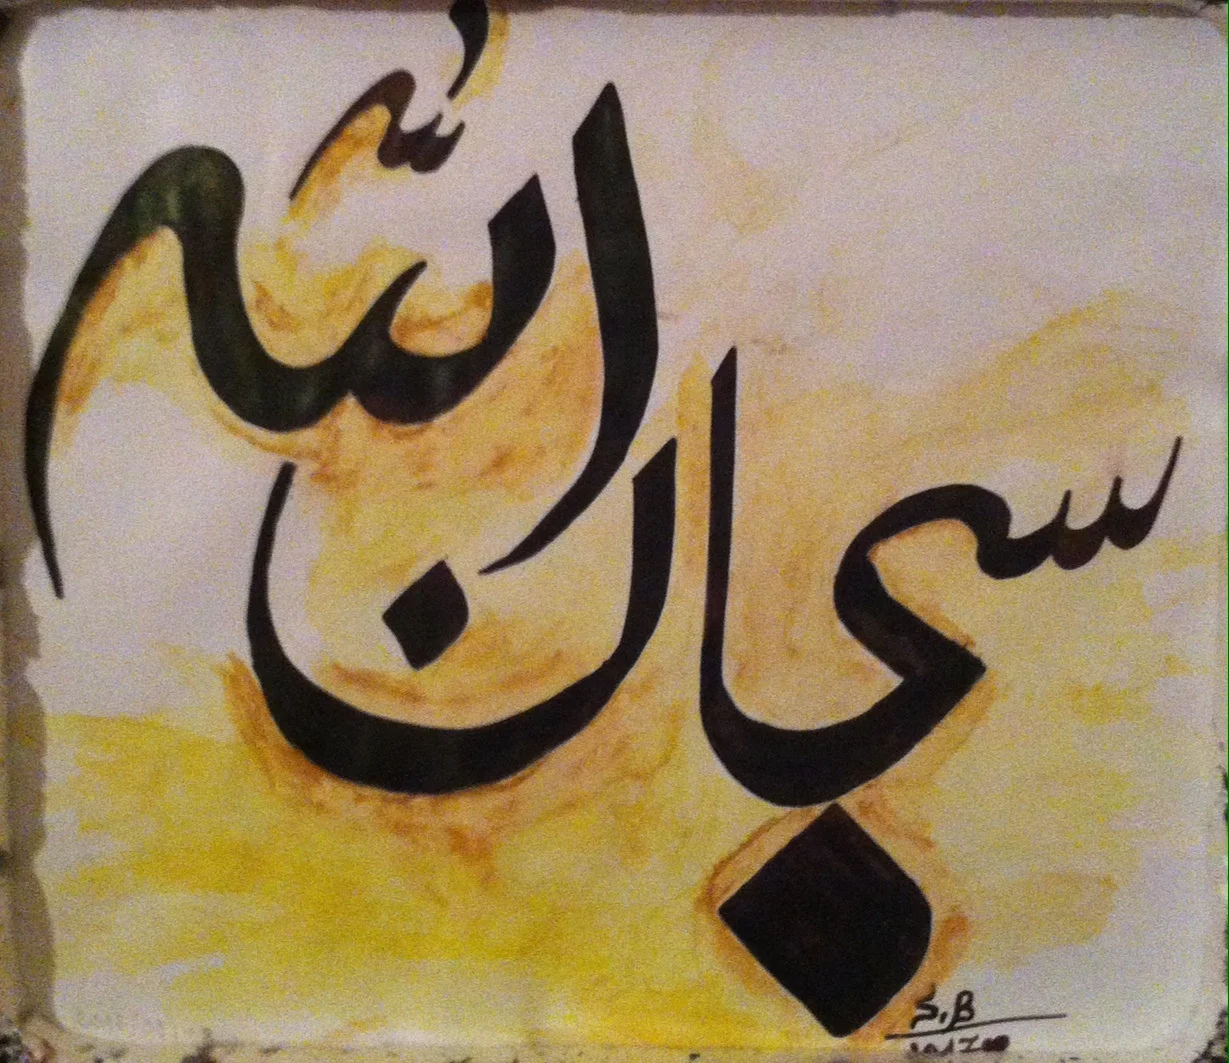 سبحان الله
S.B